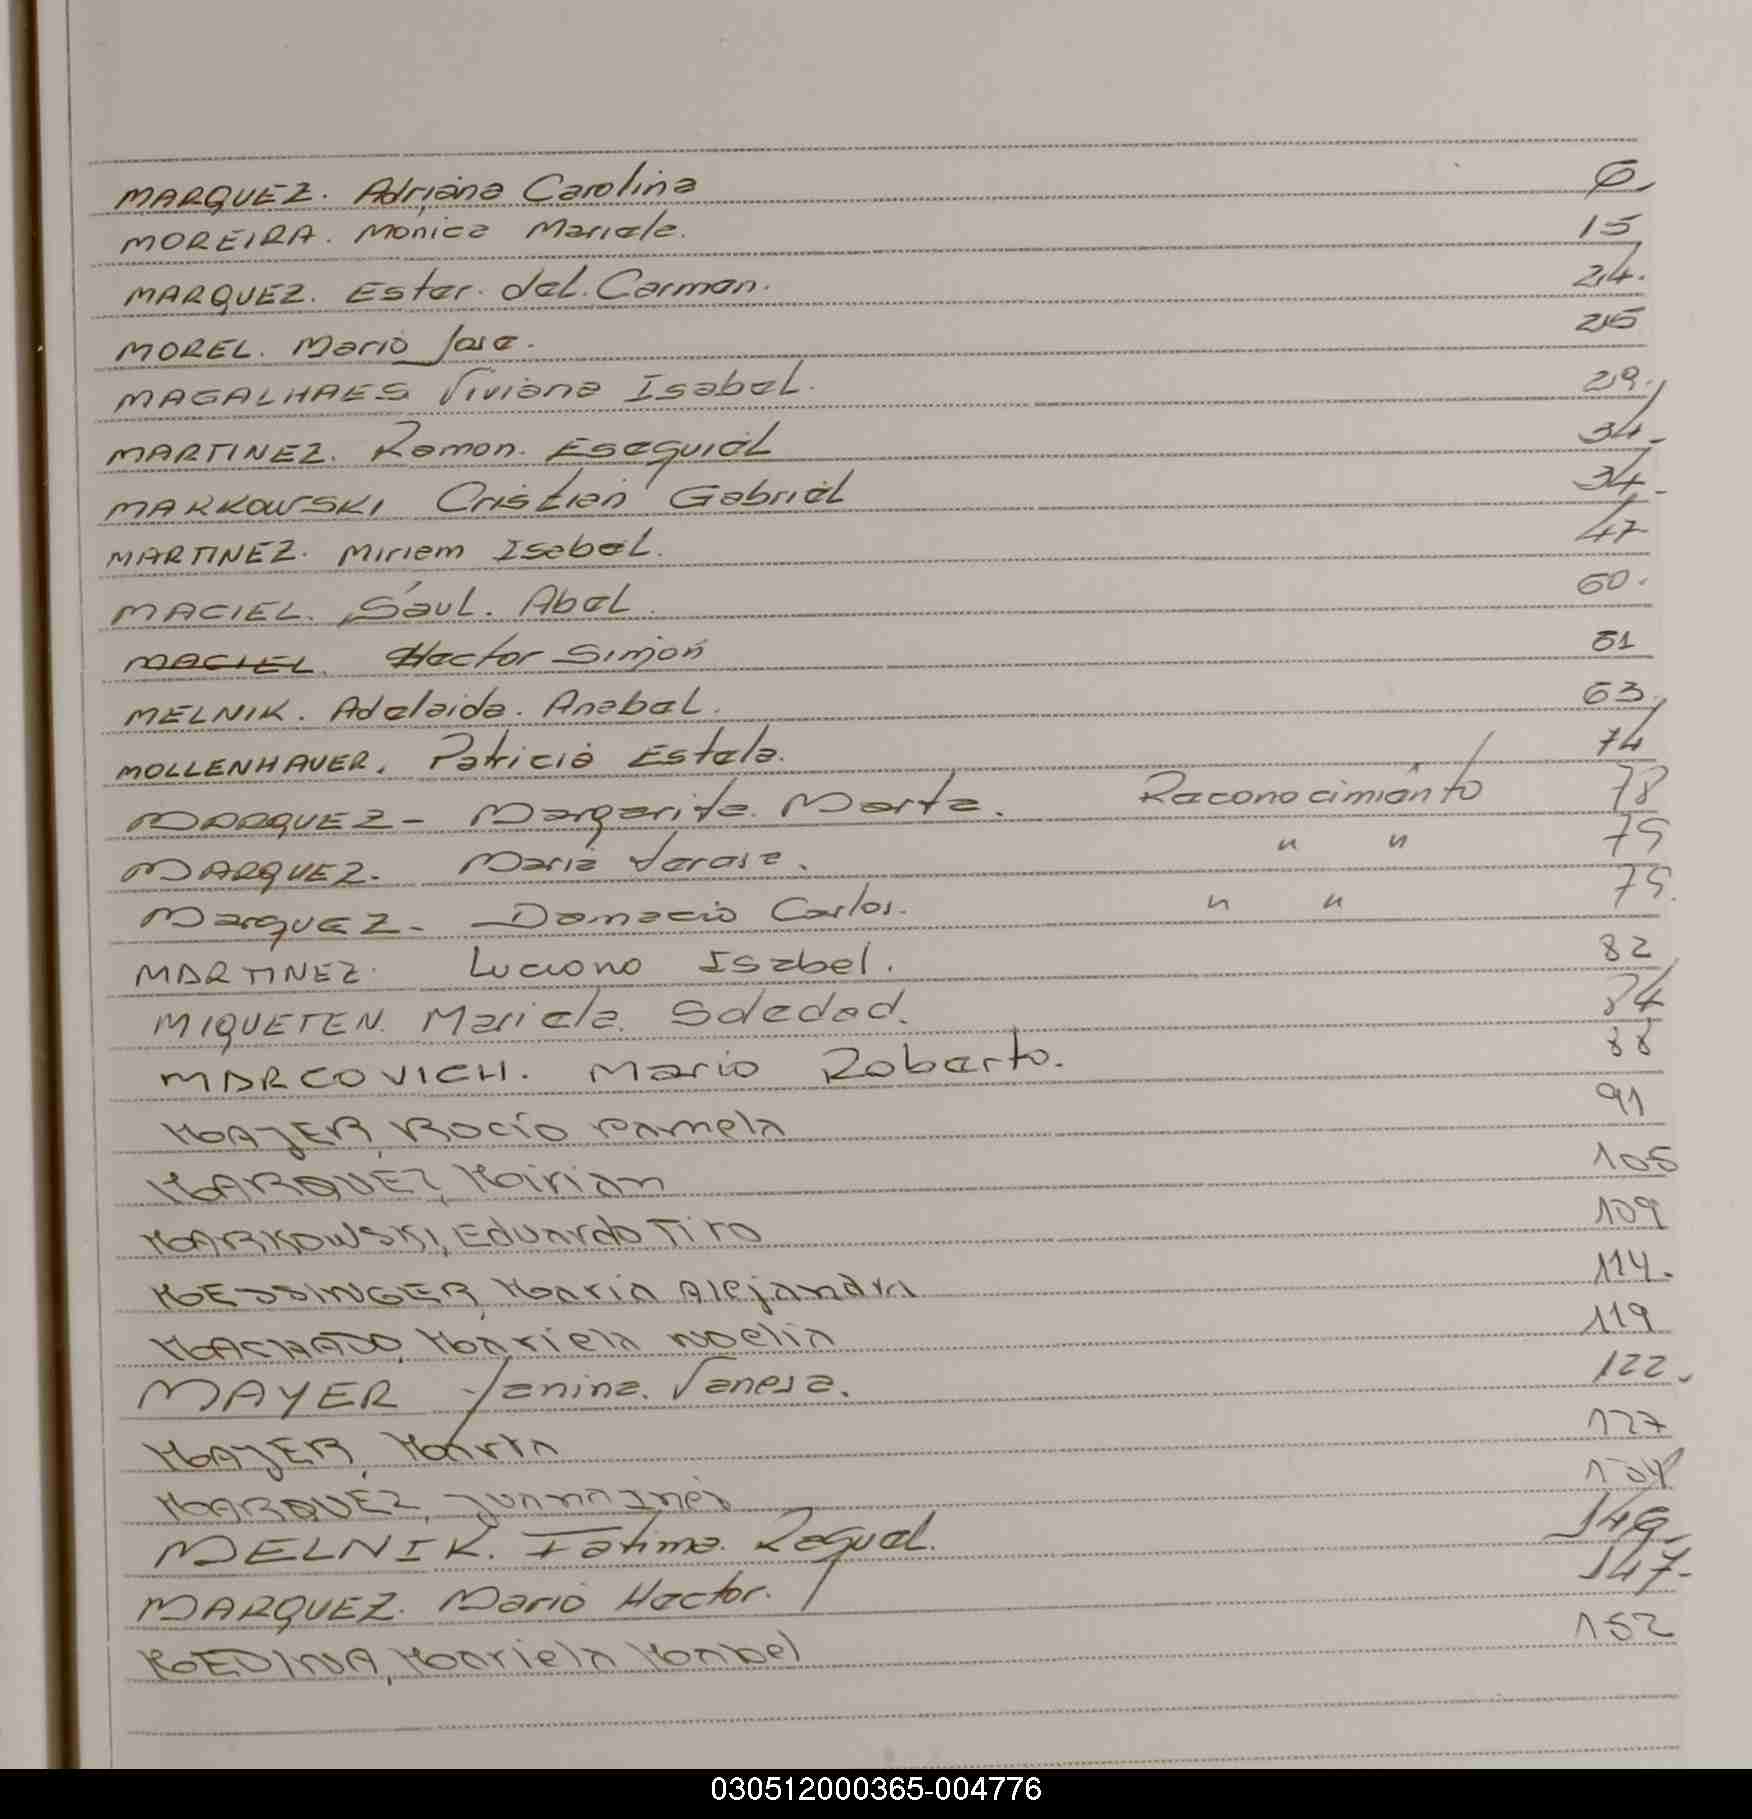 MARQUEZ. Adriana Carolina 6
MOREIRA. Monica Mariela. 15
MARQUEZ. Ester. del. Carmen. 24.
MOREL. Mario Jose. 25
MAGALHAES Viviana Isabel. 29.
MARTINEZ. Ramon. Esequiel 34.
MARKOWSKI Cristian Gabriel 34.
MARTINEZ. Miriam Isabel. 47
MACIEL. Saúl. Abel. 60.
MACIEL. Hector Simón 61
MELNIK. Adelaida. Anabel. 63.
MOLLENHAUER. Patricia Estela. 74
MARQUEZ - Margarita. Marta. Reconocimiento 78
MARQUEZ. Maria Teresa. " " 79
Marquez. Damacio Carlos. " " 79.
MARTINEZ. Luciano Isabel. 82
MIQUETEN. Mariela. Soledad. 84
MARCOVICH. Mario Roberto. 88
MAJER, Rocío Pamela 91
MARQUEZ, Mirian 105
MARKOWSKI, Eduardo Tito 109
MESSINGER, María Alejandra 114.
MACHADO, Mariela Noelia 119
MAYER Yanina. Vanesa. 122.
MAJER, Marta 127
MARQUEZ, Juana Inés
MELNIK. Fatima. Raquel. 146.
MARQUEZ. Mario Hector. 147.
MEDINA, Mariela Mabel 152
030512000365-004776